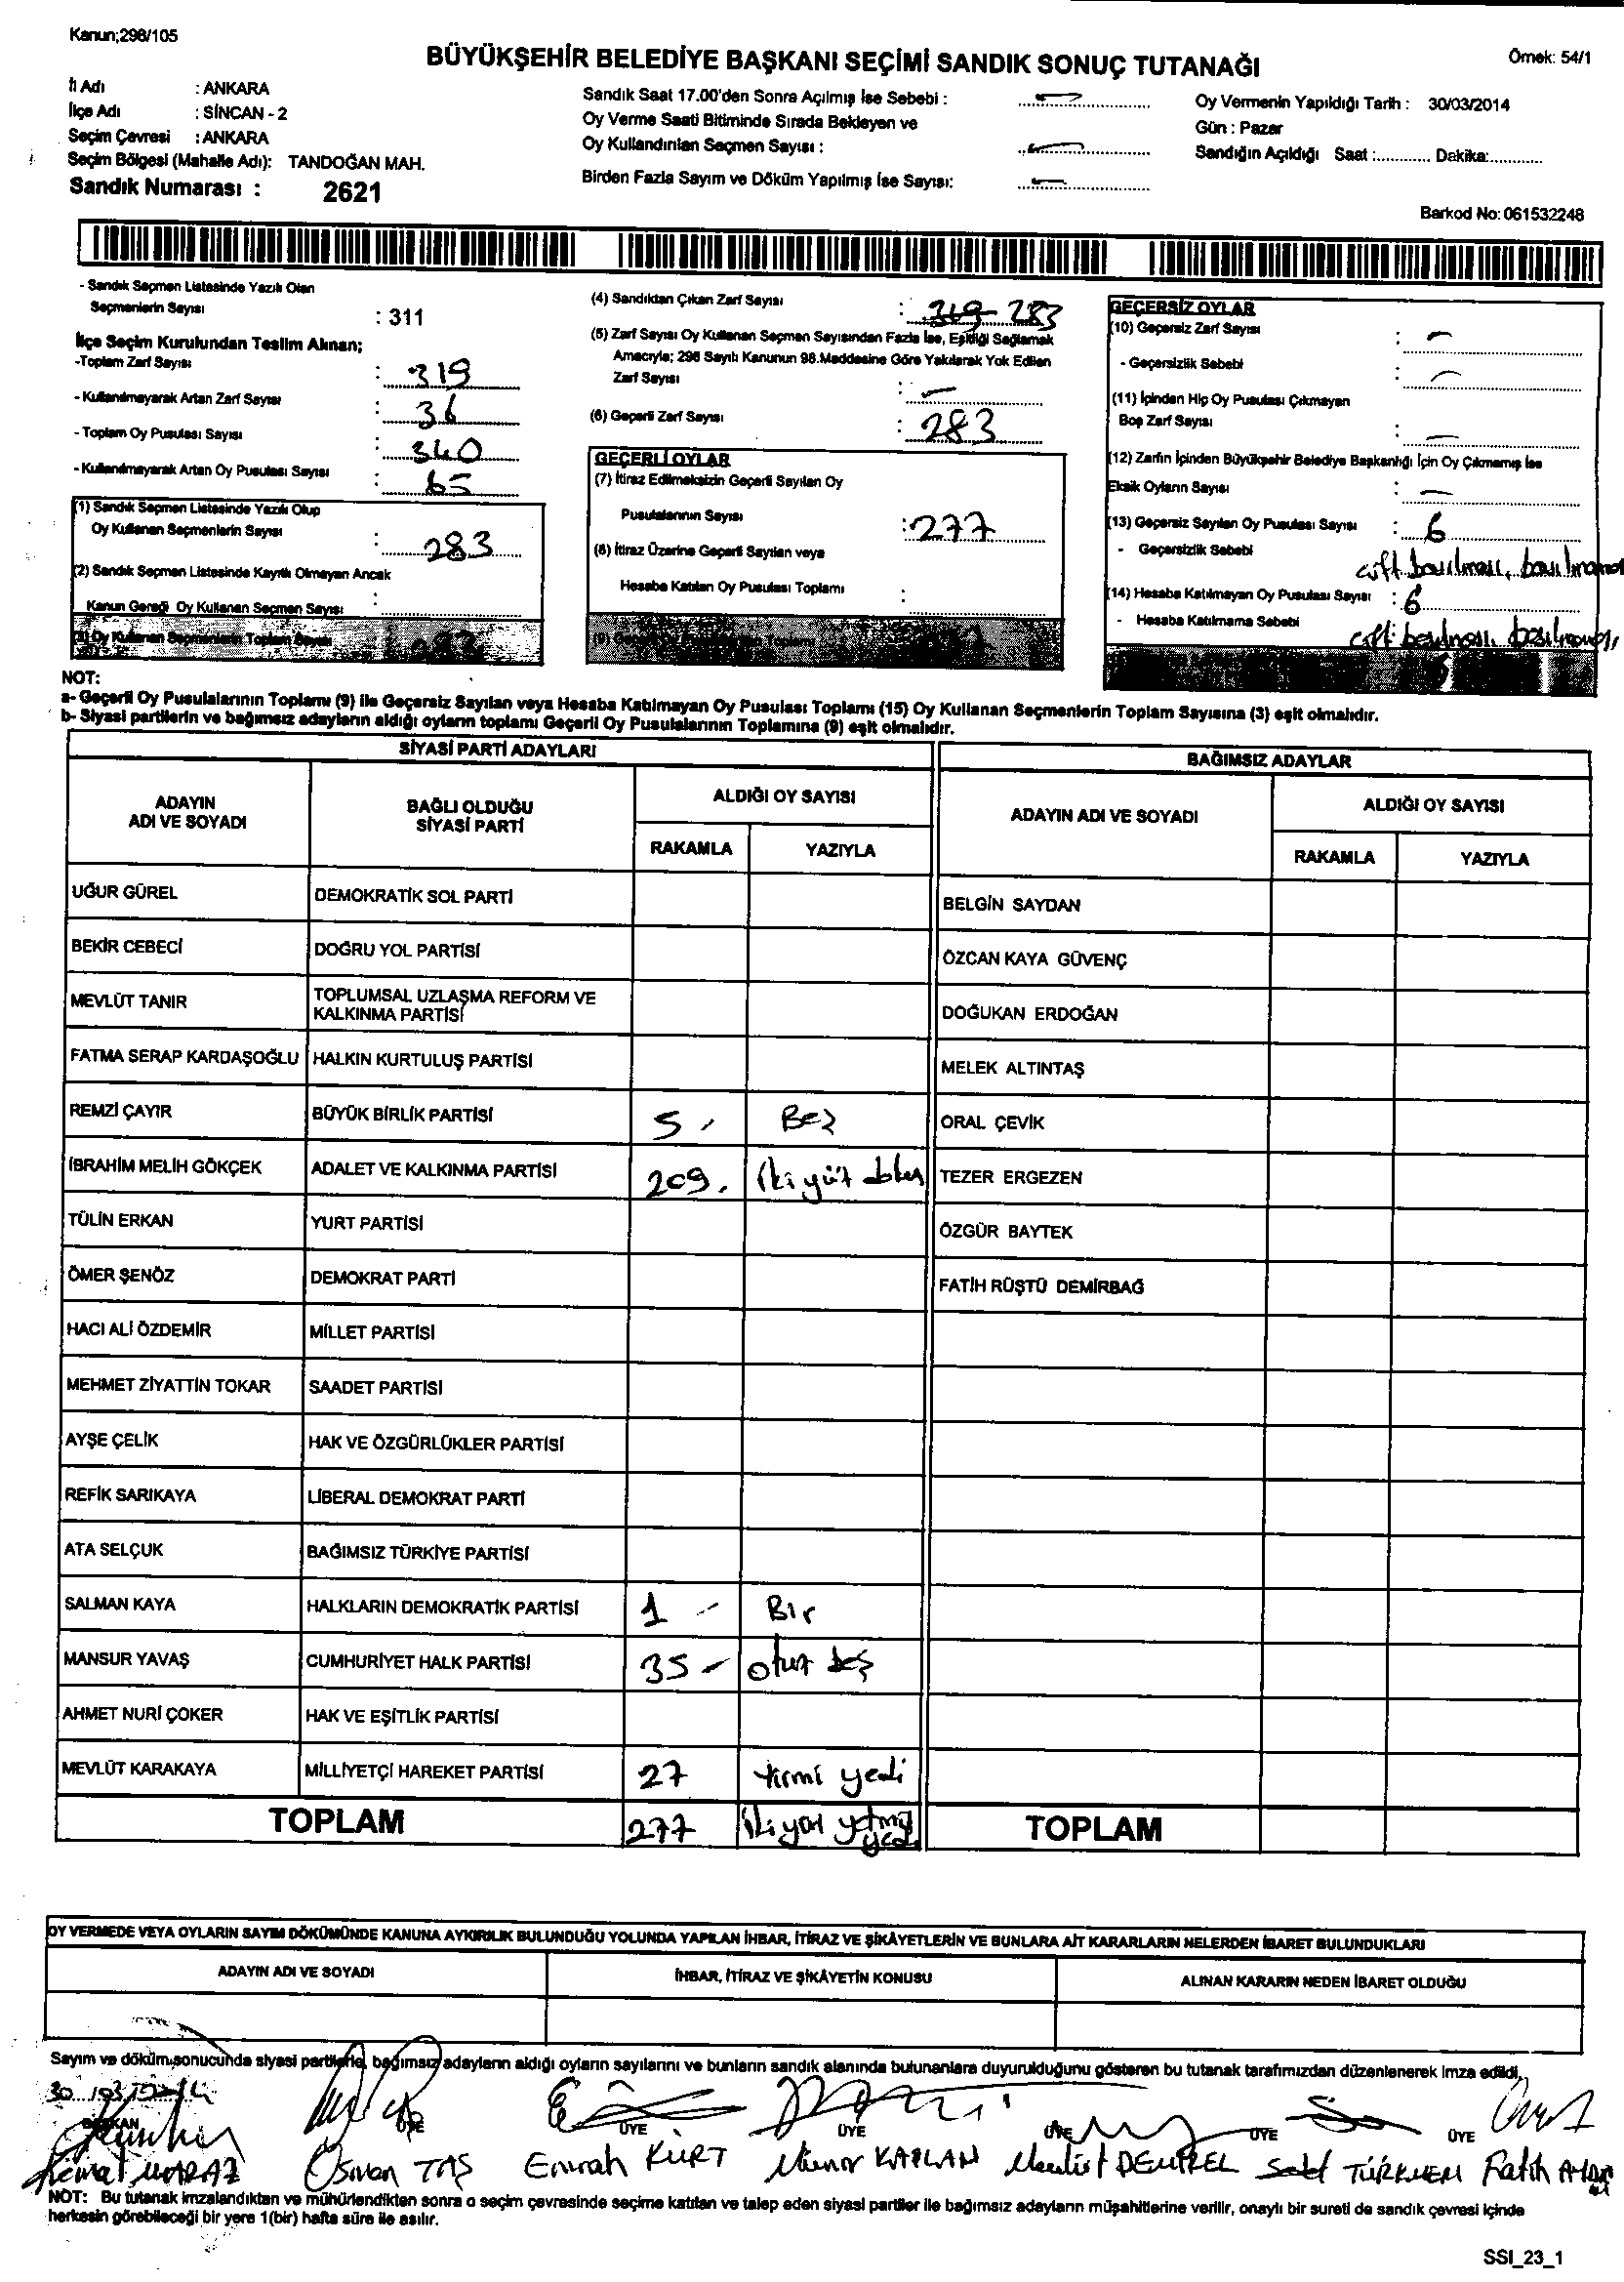 Kanun;298/105
BÜYÜKŞEHİR BELEDİYE BAŞKANI SEÇİMİ SANDIK SONUÇ TUTANAĞI
Örnek: 54/1
İl Adı : ANKARA
İlçe Adı : SİNCAN - 2
Seçim Çevresi : ANKARA
Seçim Bölgesi (Mahalle Adı): TANDOĞAN MAH.
Sandık Numarası : 2621
Sandık Saat 17.00'den Sonra Açılmış İse Sebebi :
Oy Verme Saati Bitiminde Sırada Bekleyen ve
Oy Kullandırılan Seçmen Sayısı :
Birden Fazla Sayım ve Döküm Yapılmış İse Sayısı:
Oy Vermenin Yapıldığı Tarih : 30/03/2014
Gün : Pazar
Sandığın Açıldığı Saat :............ Dakika:............
Barkod No: 061532248
- Sandık Seçmen Listesinde Yazılı Olan
Seçmenlerin Sayısı : 311
İlçe Seçim Kurulundan Teslim Alınan;
-Toplam Zarf Sayısı : 319
- Kullanılmayarak Artan Zarf Sayısı : 36
- Toplam Oy Pusulası Sayısı : 340
- Kullanılmayarak Artan Oy Pusulası Sayısı : 65
(1) Sandık Seçmen Listesinde Yazılı Olup
Oy Kullanan Seçmenlerin Sayısı : 283
(2) Sandık Seçmen Listesinde Kayıtlı Olmayan Ancak
Kanun Gereği Oy Kullanan Seçmen Sayısı :
(3) Oy Kullanan Seçmenlerin Toplam Sayısı : 283
(4) Sandıktan Çıkan Zarf Sayısı : 319 283
(5) Zarf Sayısı Oy Kullanan Seçmen Sayısından Fazla İse, Eşitliği Sağlamak
Amacıyla; 298 Sayılı Kanunun 98.Maddesine Göre Yakılarak Yok Edilen
Zarf Sayısı : -
(6) Geçerli Zarf Sayısı : 283
GEÇERLİ OYLAR
(7) İtiraz Edilmeksizin Geçerli Sayılan Oy
Pusulalarının Sayısı : 277
(8) İtiraz Üzerine Geçerli Sayılan veya
Hesaba Katılan Oy Pusulası Toplamı :
(9) Geçerli Oy Pusulalarının Toplamı : 277
GEÇERSİZ OYLAR
(10) Geçersiz Zarf Sayısı : -
- Geçersizlik Sebebi : -
(11) İçinden Hiç Oy Pusulası Çıkmayan
Boş Zarf Sayısı : -
(12) Zarfın İçinden Büyükşehir Belediye Başkanlığı İçin Oy Çıkmamış İse
Eksik Oyların Sayısı : -
(13) Geçersiz Sayılan Oy Pusulası Sayısı : 6
- Geçersizlik Sebebi çift basılması,
(14) Hesaba Katılmayan Oy Pusulası Sayısı : 6
- Hesaba Katılmama Sebebi çift basılması,
NOT:
a- Geçerli Oy Pusulalarının Toplamı (9) ile Geçersiz Sayılan veya Hesaba Katılmayan Oy Pusulası Toplamı (15) Oy Kullanan Seçmenlerin Toplam Sayısına (3) eşit olmalıdır.
b- Siyasi partilerin ve bağımsız adayların aldığı oyların toplamı Geçerli Oy Pusulalarının Toplamına (9) eşit olmalıdır.
SİYASİ PARTİ ADAYLARI
BAĞIMSIZ ADAYLAR
ADAYIN ADI VE SOYADI
BAĞLI OLDUĞU SİYASİ PARTİ
ALDIĞI OY SAYISI
RAKAMLA YAZIYLA
ADAYIN ADI VE SOYADI
ALDIĞI OY SAYISI
RAKAMLA YAZIYLA
UĞUR GÜREL DEMOKRATİK SOL PARTİ BELGİN SAYDAN
BEKİR CEBECİ DOĞRU YOL PARTİSİ ÖZCAN KAYA GÜVENÇ
MEVLÜT TANIR TOPLUMSAL UZLAŞMA REFORM VE KALKINMA PARTİSİ DOĞUKAN ERDOĞAN
FATMA SERAP KARDAŞOĞLU HALKIN KURTULUŞ PARTİSİ MELEK ALTINTAŞ
REMZİ ÇAYIR BÜYÜK BİRLİK PARTİSİ 5 Beş ORAL ÇEVİK
İBRAHİM MELİH GÖKÇEK ADALET VE KALKINMA PARTİSİ 209 iki yüz dokuz TEZER ERGEZEN
TÜLİN ERKAN YURT PARTİSİ ÖZGÜR BAYTEK
ÖMER ŞENÖZ DEMOKRAT PARTİ FATİH RÜŞTÜ DEMİRBAĞ
HACI ALİ ÖZDEMİR MİLLET PARTİSİ
MEHMET ZİYATTİN TOKAR SAADET PARTİSİ
AYŞE ÇELİK HAK VE ÖZGÜRLÜKLER PARTİSİ
REFİK SARIKAYA LİBERAL DEMOKRAT PARTİ
ATA SELÇUK BAĞIMSIZ TÜRKİYE PARTİSİ
SALMAN KAYA HALKLARIN DEMOKRATİK PARTİSİ 1 - Bir
MANSUR YAVAŞ CUMHURİYET HALK PARTİSİ 35 - otuz beş
AHMET NURİ ÇOKER HAK VE EŞİTLİK PARTİSİ
MEVLÜT KARAKAYA MİLLİYETÇİ HAREKET PARTİSİ 27 yirmi yedi
TOPLAM 277 iki yüz yetmiş yedi TOPLAM
OY VERMEDE VEYA OYLARIN SAYIM DÖKÜMÜNDE KANUNA AYKIRILIK BULUNDUĞU YOLUNDA YAPILAN İHBAR, İTİRAZ VE ŞİKÂYETLERİN VE BUNLARA AİT KARARLARIN NELERDEN İBARET BULUNDUKLARI
ADAYIN ADI VE SOYADI İHBAR, İTİRAZ VE ŞİKÂYETİN KONUSU ALINAN KARARIN NEDEN İBARET OLDUĞU
Sayım ve döküm sonucunda siyasi partilerle, bağımsız adayların aldığı oyların sayılarını ve bunların sandık alanında bulunanlara duyurulduğunu gösteren bu tutanak tarafımızdan düzenlenerek imza edildi.
30/03/2014
BAŞKAN ÜYE ÜYE ÜYE ÜYE ÜYE ÜYE
Kemal MARAZ Osman TAŞ Emrah KURT Münür KAPLAN Mevlüt DEMİREL Sait TÜRKMEN Fatih
NOT: Bu tutanak imzalandıktan ve mühürlendikten sonra o seçim çevresinde seçime katılan ve talep eden siyasi partiler ile bağımsız adayların müşahitlerine verilir, onaylı bir sureti de sandık çevresi içinde
herkesin görebileceği bir yere 1(bir) hafta süre ile asılır.
SSI_23_1